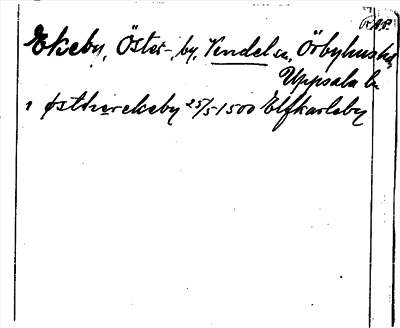 RAP.
Ekeby, Öster-, by, Vendel sn, Örbyhus hd,
Uppsala l.
i østherekeby 25/5 1500 Elfkarleby